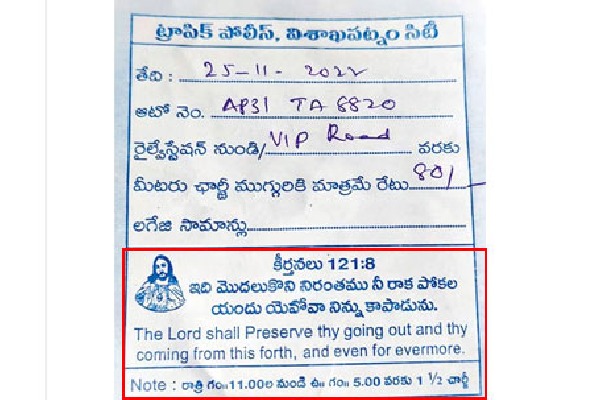 ట్రాఫిక్ పోలీస్, విశాఖపట్నం సిటీ
తేది : 25-11-2022
ఆటో నెం. AP31 TA 8820
రైల్వేస్టేషన్ నుండి/ VIP Road వరకు
మీటరు ఛార్జీ ముగ్గురికి మాత్రమే రేటు 80/-
లగేజి సామాన్లు
కీర్తనలు 121:8
ఇది మొదలుకొని నిరంతము నీ రాక పోకల
యందు యెహోవా నిన్ను కాపాడును.
The Lord shall Preserve thy going out and thy
coming from this forth, and even for evermore.
Note : రాత్రి గం॥11.00ల నుండి ఉ॥ గం॥ 5.00 వరకు 1 ½ చార్జీ